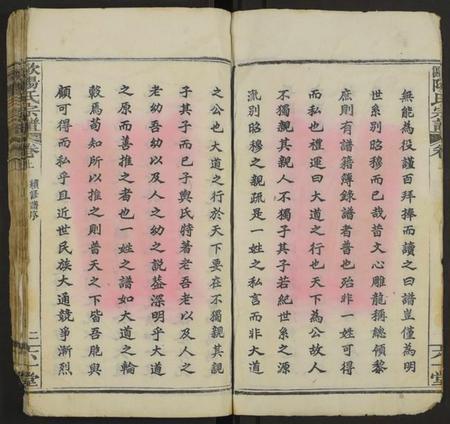 歐陽氏宗譜
卷
六一堂
無能為役謹百拜捧而讀之曰譜豈僅為明
世系別昭穆而已哉昔文心雕龍稱總領黎
庶則有譜籍簿錄譜者普也殆非一姓可得
而私也禮運曰大道之行也天下為公故人
不獨親其親人不獨子其子若紀世系之源
流別昭穆之親疏是一姓之私言而非大道
之公也大道之行於天下要在不獨親其親
子其子而已子輿氏特著老吾老以及人之
老幼吾幼以及人之幼之說葢深明乎大道
之原而善推之者也一姓之譜如大道之輪
轂焉苟知所以推之則普天之下皆吾胞與
顧可得而私乎且近世民族大通競爭漸烈
歐陽氏宗譜
卷上
續修譜序
二
六一堂